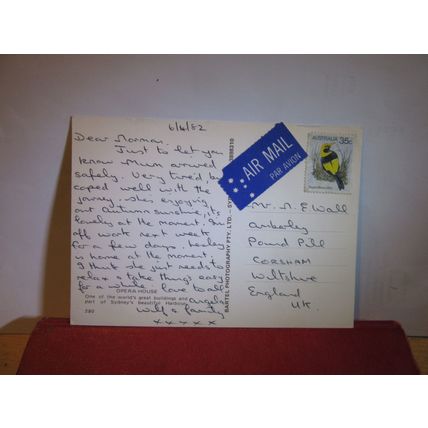 6/4/82
Dear Norman.
Just to let you
know Mum arrived
safely. Very tired, but
coped well with the
journey. she's enjoying
our Autumn sunshine, its
lovely at the moment. I'm
off work next week
for a few days. Lesley
is home at the moment.
I think she just needs to
relax & take things easy
for a while. love to all
Angela
Wilf & family
x x x x x
OPERA HOUSE
One of the world's great buildings and
part of Sydney's beautiful Harbour.
280
BARTEL PHOTOGRAPHY PTY. LTD. –
AIR MAIL
PAR AVION
AUSTRALIA 35c
Mr. N. E. Wall
Pound Pill
CORSHAM
Wiltshire
England
UK.